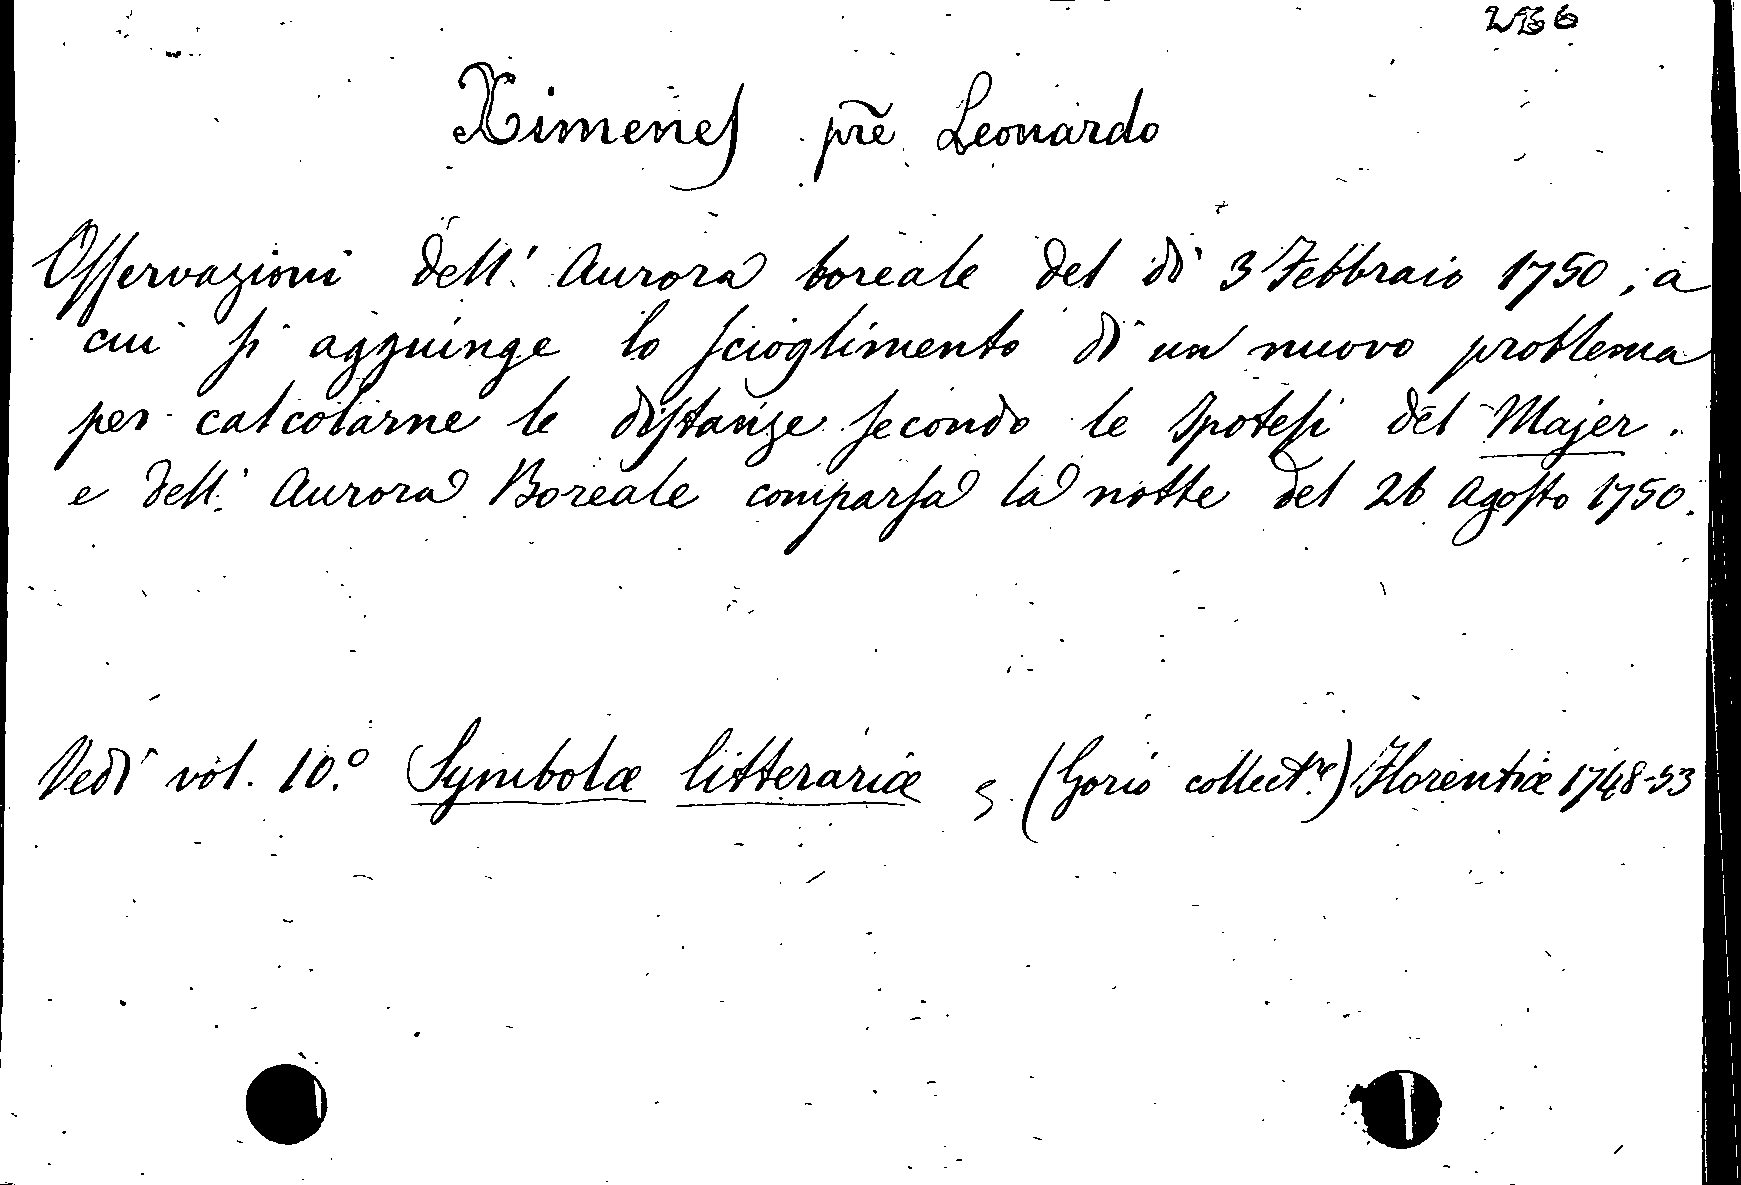 256
Ximenes prē Leonardo
Osservazioni dell' Aurora boreale del dì 3 Febbraio 1750, a
cui si aggiunge lo scioglimento di un nuovo problema
per calcolarne le distanze secondo le Ipotesi del Majer.
e dell' Aurora Boreale comparsa la notte del 26 Agosto 1750.
Vedi vol. 10.° Symbolæ litterariæ, (Gorio collect.re) Florentiæ 1748-53